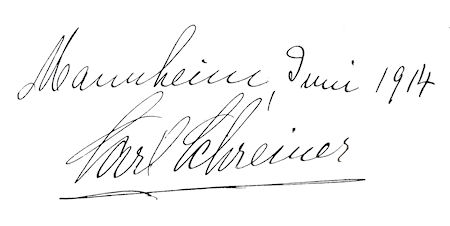 Mannheim, Juni 1914
Karl Schreiner